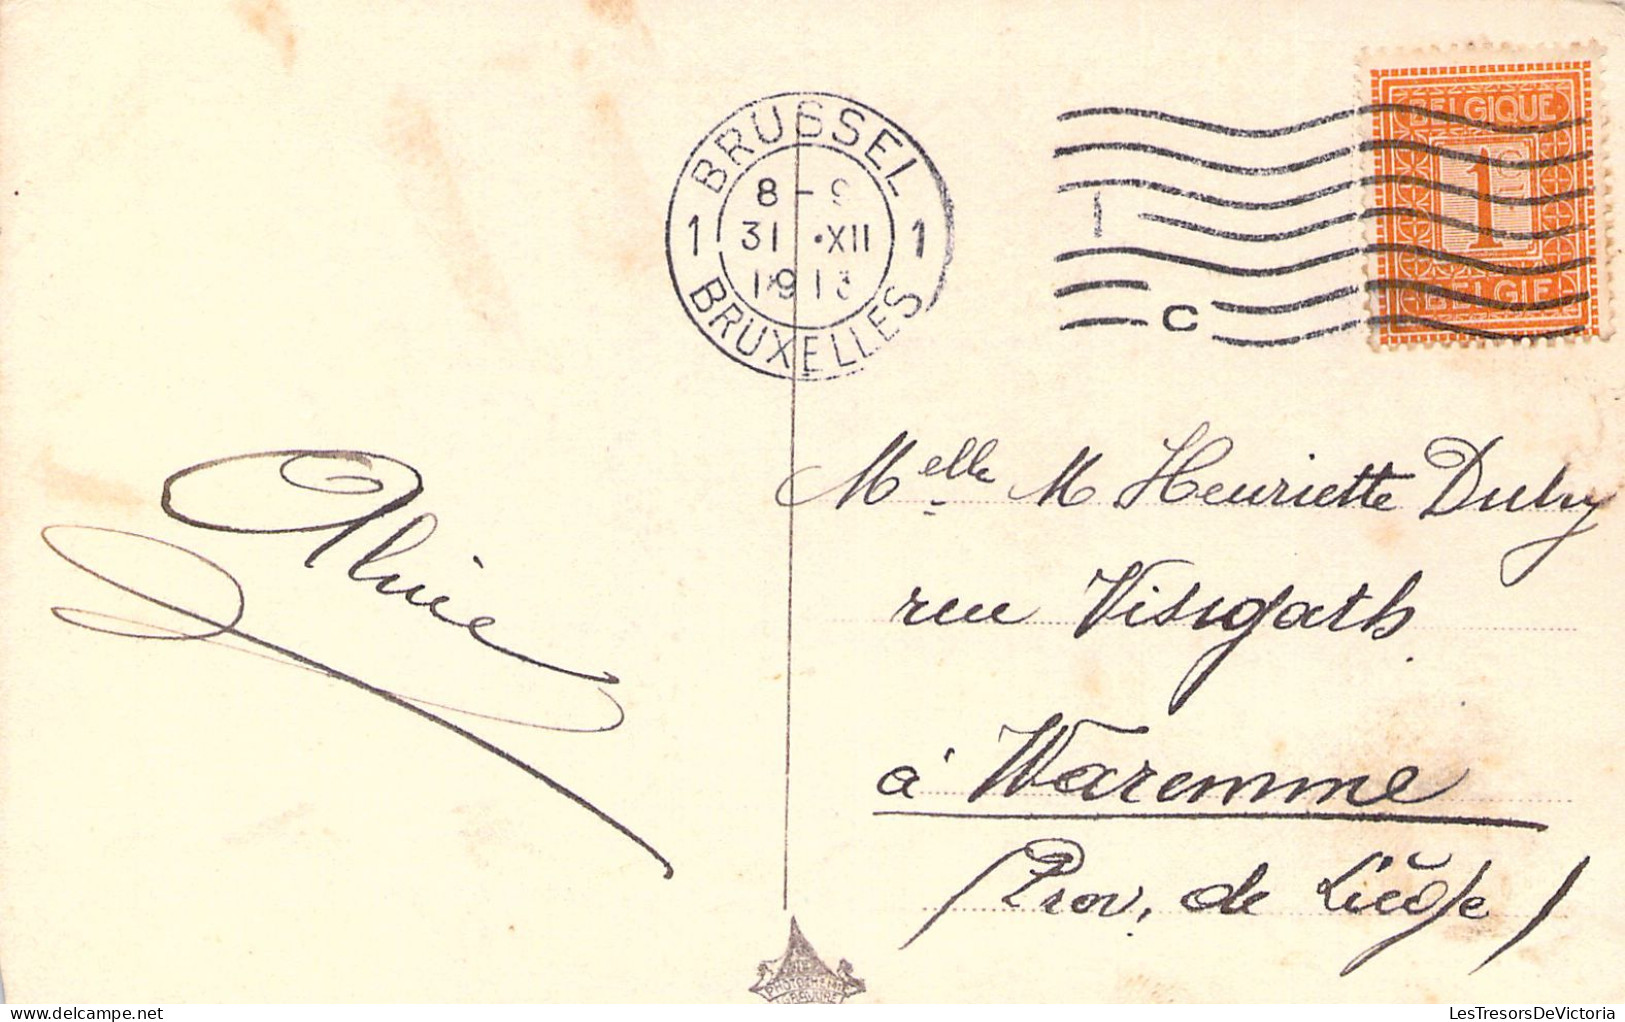 BRUSSEL
8 - 9
31 · XII
1913
1 1
BRUXELLES
1
C
BELGIQUE
1c
BELGIE
Melle M Henriette Dubry
rue Visigath
à Waremme
(Prov. de Liège)
Aline
PHOTOCHEMIE
GRAVURE
LesTresorsDeVictoria